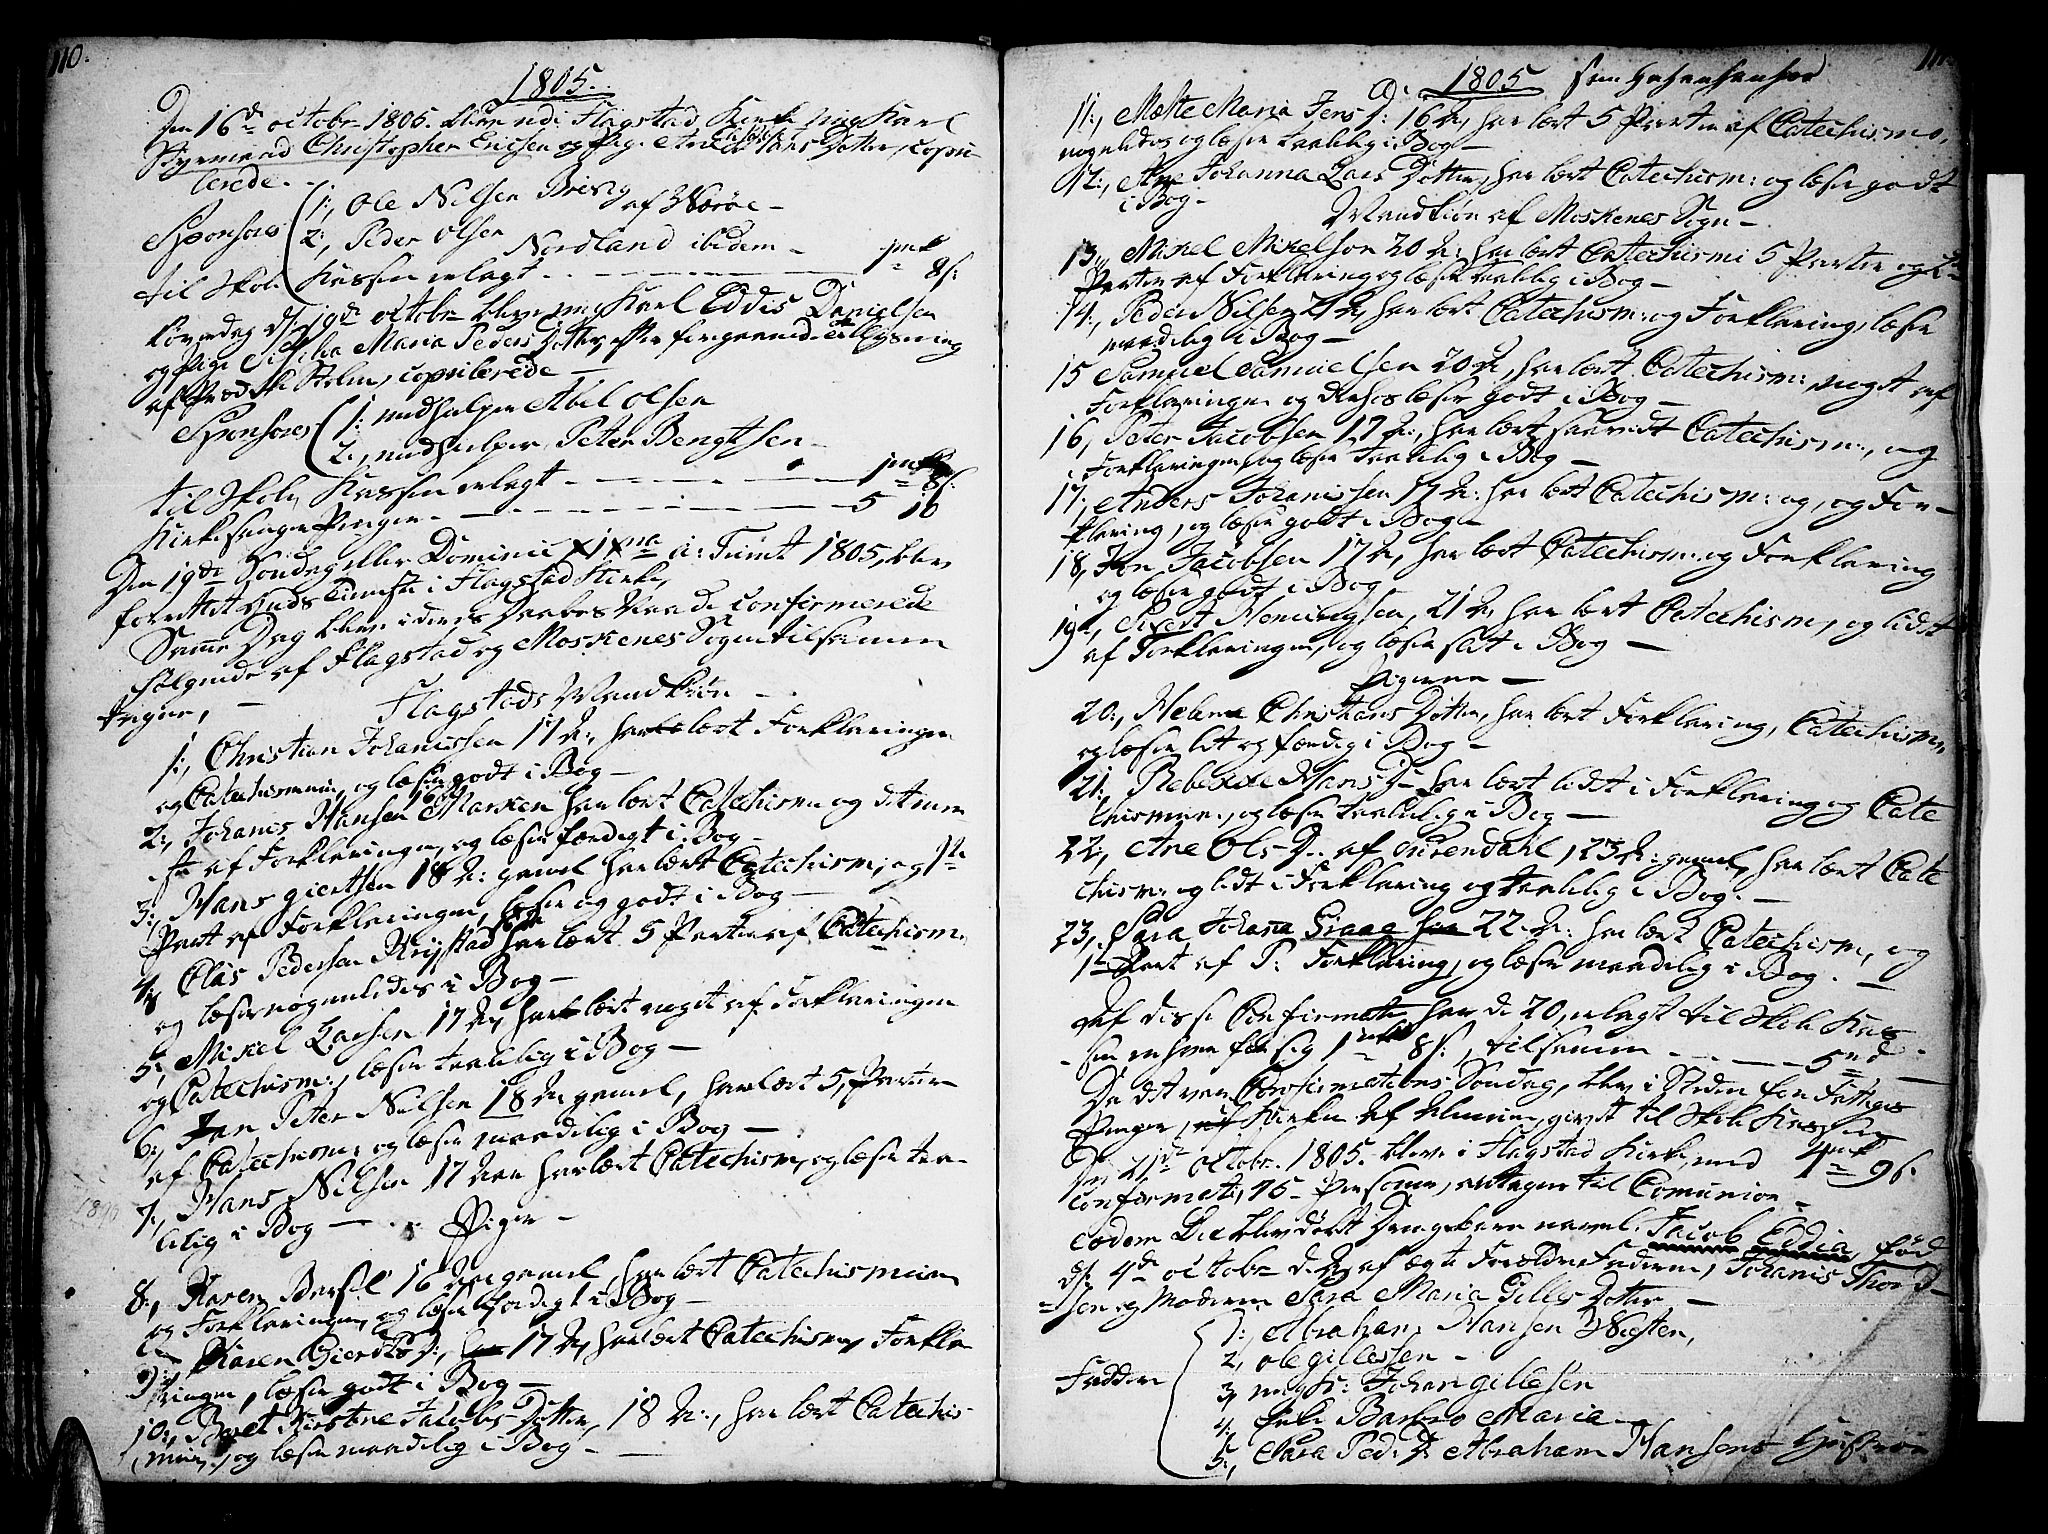 110.
1805.
Den 16de octobr 1805. blev udi Flagstad Kirke ung Karl
Christopher Ericsen og Pige Hans Dotter, copu
lerede.
Sponsores 1:, Ole Nilsen Brevig af Værøe
2:, Peder Olsen Nordland ibidem
til Skole Kassen erlagt 1 mk 8 s:
Løverdag d: 19de octobr blev ung Karl Eddis Danielsen
og Pige Maria Peders Dotter, efter foregaaende tillysning
af Prædike Stolen, copulerede
Sponsores 1: medhielper Abel Olsen
2:, medhielper Peter Bengtsen
til Skole Kassen erlagt 1 mk 8 s:
Kirkesanger Penger 5 10
Den 19de Søndag eller Dominic XIXna a: Trinit 1805, blev
forrettet Guds tieneste i Flagstad Kirke,
Samme Dag blev i deres Daabes Naade confirmerede
følgende af Flagstad og Moskenes Sogn tilsamen
Penger,
Flagstads Mandkiøn
1:, Christian Johanissen 17 Aar, har lært Forklaringen
og Catechismum, og læser godt i Bog
2:, Johanis Hansen Marken har lært Catechismu og det meste
af Forklaringen, og læser færdigt i Bog
3:, Hans Giertsen 18 Aar gamel har lært Catechism, og 1te
Part af Forklaringen, læser og godt i Bog
4, Elias Pedersen har lært 5 Parter af Catechism,
og læser nogenledes i Bog
5:, Mikel Larsen 17 Aar, har lært noget af Forklaringen
og Catechism:, læser taalelig i Bog
6:, Jan Peter Nilsen 18 Aar gamel, har lært 5 Parter
af Catechism: og læser maadelig i Bog
7:, Hans Nilsen 17 Aar har lært Catechism, og læser taa
lelig i Bog
Piger
8:, Karen 16 Aar gamel, har lært Catechismum
og Forklaringen, og læser færdigt i Bog
9:, Karen Giertsd:, 17 Aar, har lært Catechism, Forkla
ringen, læser godt i Bog
10:, Beret Kirstine Jacobs Dotter, 18 Aar, har lært Catechis
mum, og læser maadelig i Bog
111.
1805
11:, Mette Maria Jens D: 16 Aar, har lært 5 Parter af Catechismo,
nogenledes og læser taalelig i Bog
12:, Ane Johanna Lars Dotter, har lært Catechism: og læser godt
i Bog
Mandkiøn af Moskenes Sogn
13, Mikel Mikelsen 20 Aar: har lært Catechismi 5 Parter og
Parter af Forklaring og læser taalelig i Bog
14:, Peder Nilsen 21 Aar, har lært Catechism: og Forklaring, læser
maadelig i Bog
15 Samuel Samuelsen 20 Aar, har lært Catechism:, noget af
Forklaringen og læser godt i Bog
16, Peter Jacobsen 17 Aar:, har lært Catechism:, og
Forklaringen, og læser taalelig i Bog
17:, Anders Johanissen 17 Aar: har lært Catechism: og, og For-
klaring, og læser godt i Bog
18, Jon Jacobsen 17 Aar, har lært Catechism: og Forklaring
og læser godt i Bog
19, Henningsen, 21 Aar, har lært Catechism, og lidet
af Forklaringen, og læser slet i Bog
Pigerne
20:, Helena Christians Dotter, har lært Forklaring, Catechism
og læser let og færdig i Bog
21:, Rebekka Hans D har lært lidet i Forklaring og Cate
chismum, og læser taalelig i Bog
22:, Ane Ols D: af 23 Aar: gamel, har lært Cate
chism: og lidt i Forklaring og taalelig i Bog.
23, Sara Johana Graae 22 Aar: har lært Catechism, og
1te Part af P: Forklaring, og læser maadelig i Bog.
Af disse Confirmati har de 20, erlagt til Skole Kas
sen enhver for sig 1 mk 8 s:, tilsamen 5 rd
Da det var Confirmations Søndag, blev i Steden for Fattiges
Penger, givet til Skole Kassen
Den 21de octobr. 1805. blev i Flagstad Kirke, med 4 mk 9 s.
confirmati, 75 Personer, antagne til Comunion
Eodem Die blev døbt Drengebarn navnl: Jacob Eddia, fød
d: 4de octobr d: A: af ægte Forældre Faderen, Johanis Thord
sen og Moderen Sara Maria Gilles Dotter
Faddere
1:, Abraham Hansen Næsten,
2, Ole Gillessen
3, ungk: Johan Gillesen
4, Barbro Maria
5:, Sara Ped: D Abraham Hansens Hustroe